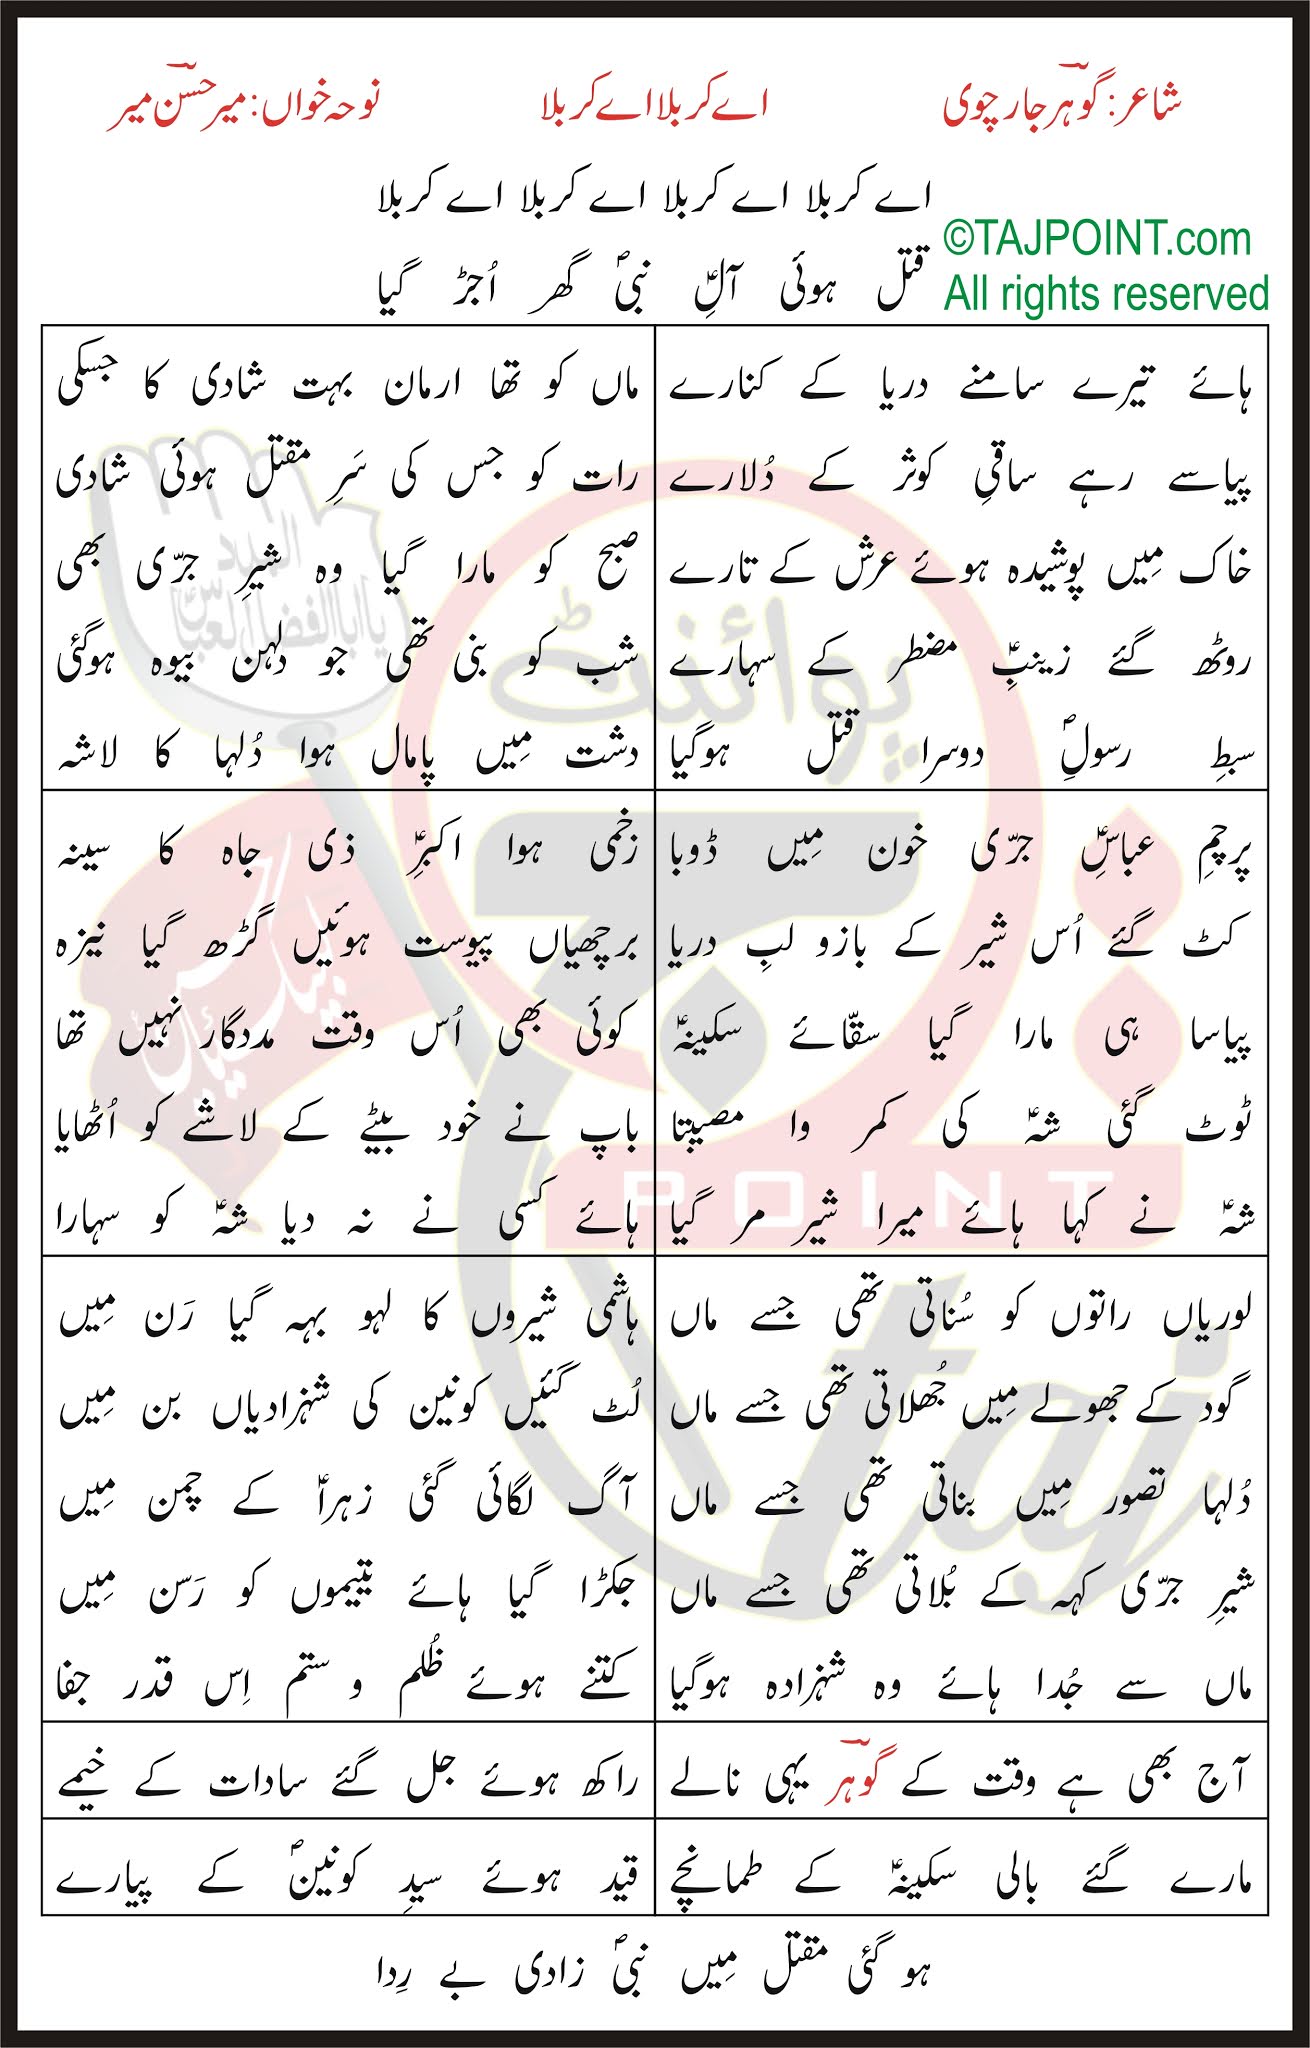 شاعر: گوہر جارچوی
اے کربلا اے کربلا
نوحہ خواں: میر حسن میر
اے کربلا اے کربلا اے کربلا اے کربلا
©TAJPOINT.com
All rights reserved
قتل ہوئی آلِ نبیؐ گھر اُجڑ گیا
ہائے تیرے سامنے دریا کے کنارے
پیاسے رہے ساقیِ کوثر کے دُلارے
خاک مِیں پوشیدہ ہوئے عرش کے تارے
روٹھ گئے زینبِؑ مضطر کے سہارے
سبطِ رسولِؐ دوسرا قتل ہوگیا
ماں کو تھا ارمان بہت شادی کا جسکی
رات کو جس کی سَرِ مقتل ہوئی شادی
صبح کو مارا گیا وہ شیرِ جرّی بھی
شب کو بنی تھی جو دلہن بیوہ ہوگئی
دشت مِیں پامال ہوا دُلہا کا لاشہ
پرچمِ عباسِؑ جرّی خون مِیں ڈوبا
کٹ گئے اُس شیر کے بازو لبِ دریا
پیاسا ہی مارا گیا سقّائے سکینہؑ
ٹوٹ گئی شہؑ کی کمر وا مصیبتا
شہؑ نے کہا ہائے میرا شیر مر گیا
زخمی ہوا اکبرِؑ ذی جاہ کا سینہ
برچھیاں پیوست ہوئیں گڑھ گیا نیزہ
کوئی بھی اُس وقت مددگار نہیں تھا
باپ نے خود بیٹے کے لاشے کو اُٹھایا
ہائے کسی نے نہ دیا شہؑ کو سہارا
لوریاں راتوں کو سُناتی تھی جسے ماں
گود کے جھولے مِیں جُھلاتی تھی جسے ماں
دُلہا تصور مِیں بناتی تھی جسے ماں
شیرِ جرّی کہہ کے بُلاتی تھی جسے ماں
ماں سے جُدا ہائے وہ شہزادہ ہوگیا
ہاشمی شیروں کا لہو بہہ گیا رَن مِیں
لُٹ گئیں کونین کی شہزادیاں بن مِیں
آگ لگائی گئی زہراؑ کے چمن مِیں
جکڑا گیا ہائے یتیموں کو رَسن مِیں
کتنے ہوئے ظُلم و ستم اِس قدر جفا
آج بھی ہے وقت کے گوہر یہی نالے
راکھ ہوئے جل گئے سادات کے خیمے
مارے گئے بالی سکینہؑ کے طمانچے
قید ہوئے سیدِ کونینؐ کے پیارے
ہو گئی مقتل مِیں نبیؐ زادی بے رِدا
پوائنٹ
POINT
taj
یا ابا الفضل العباسؑ